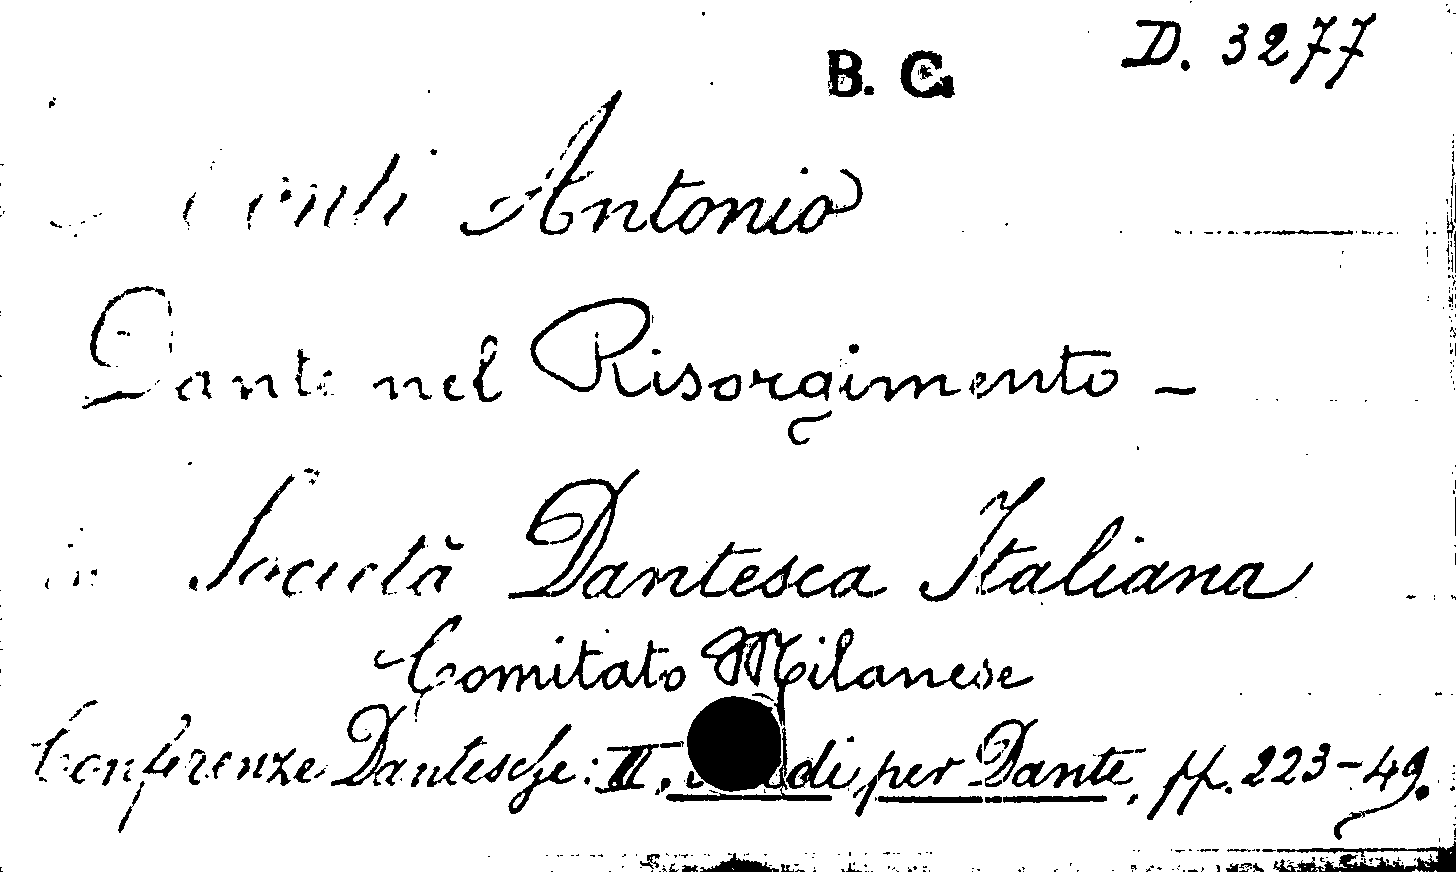 D. 3277
B. G.
Antonio
Dante nel Risorgimento -
in Società Dantesca Italiana
Comitato Milanese
Conferenze Dantesche: II, di per Dante, pp. 223-49.